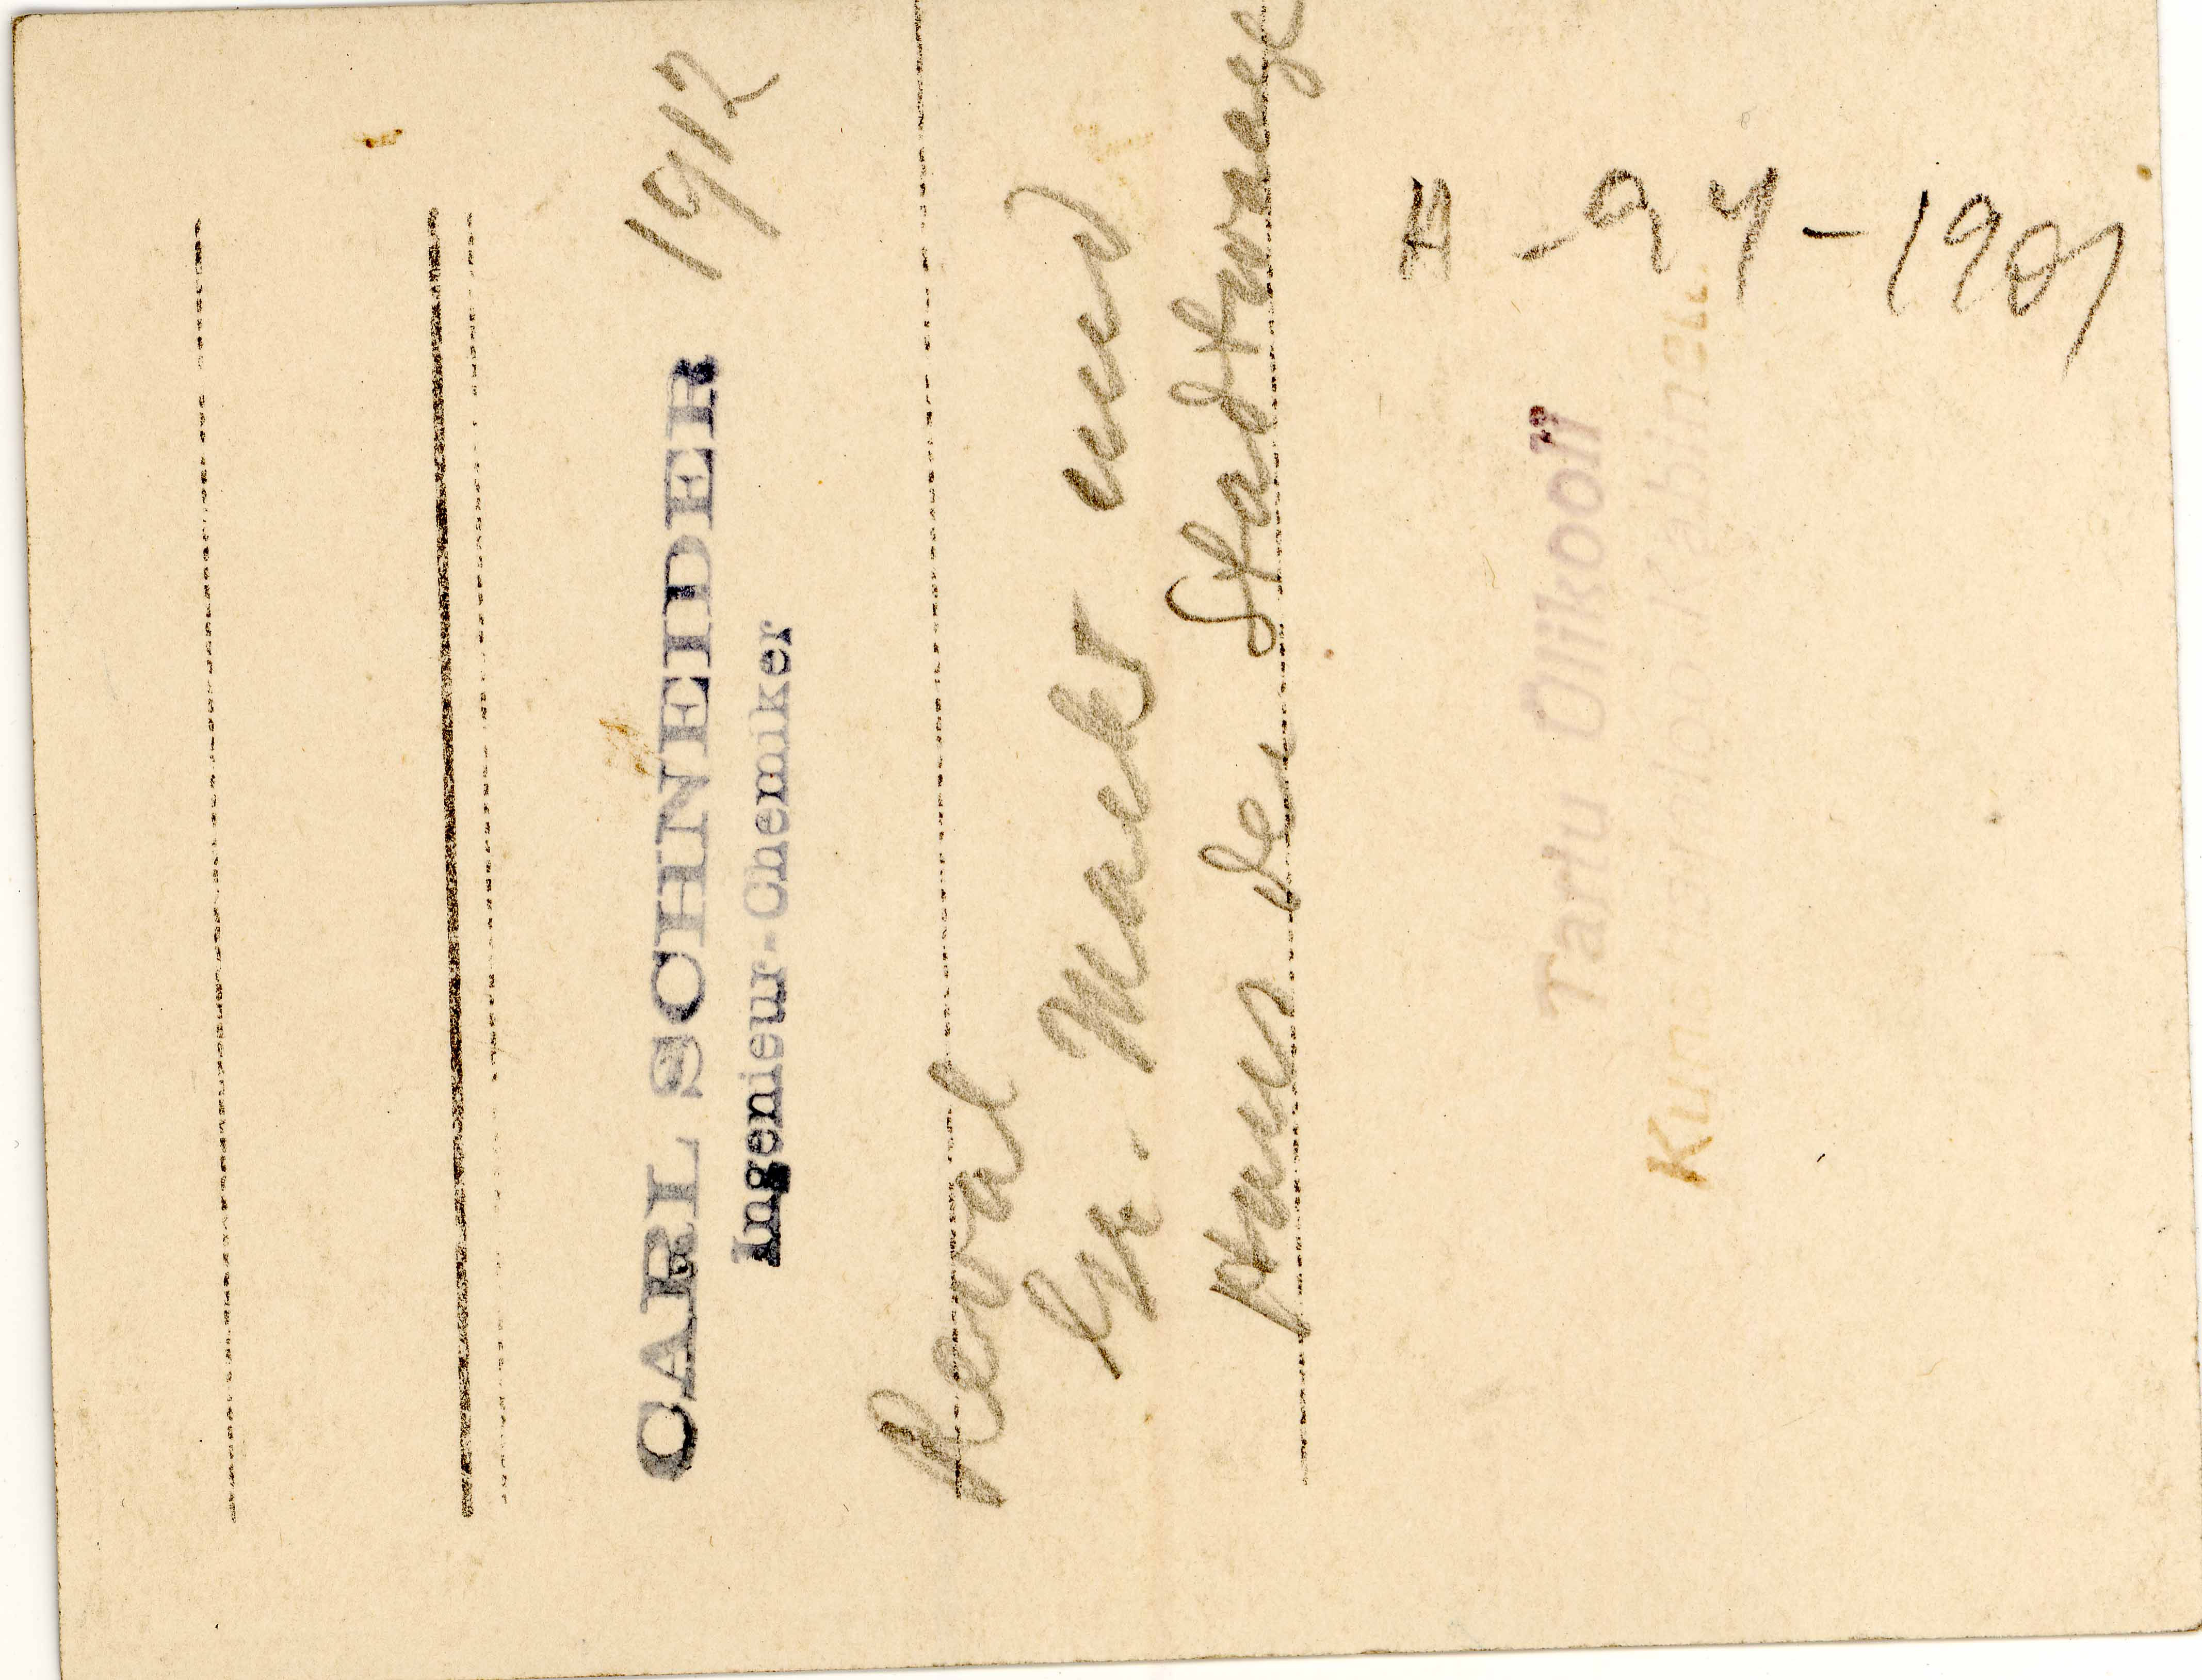 1912
CARL SCHNEIDER
Ingenieur-Chemiker
Reval
Gr. Markt und
Haus der Stadtwaage
Tartu Ülikooli
Kunstiajaloo Kabinet
-94-1901